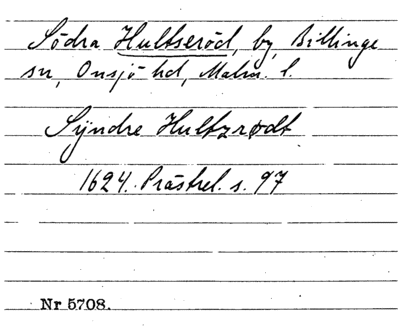 Södra Hultseröd, by, Billinge
sn, Onsjö hd, Malm. l.
Syndre Hultzrødt
1624. Prästrel. s. 97
Nr 5708.